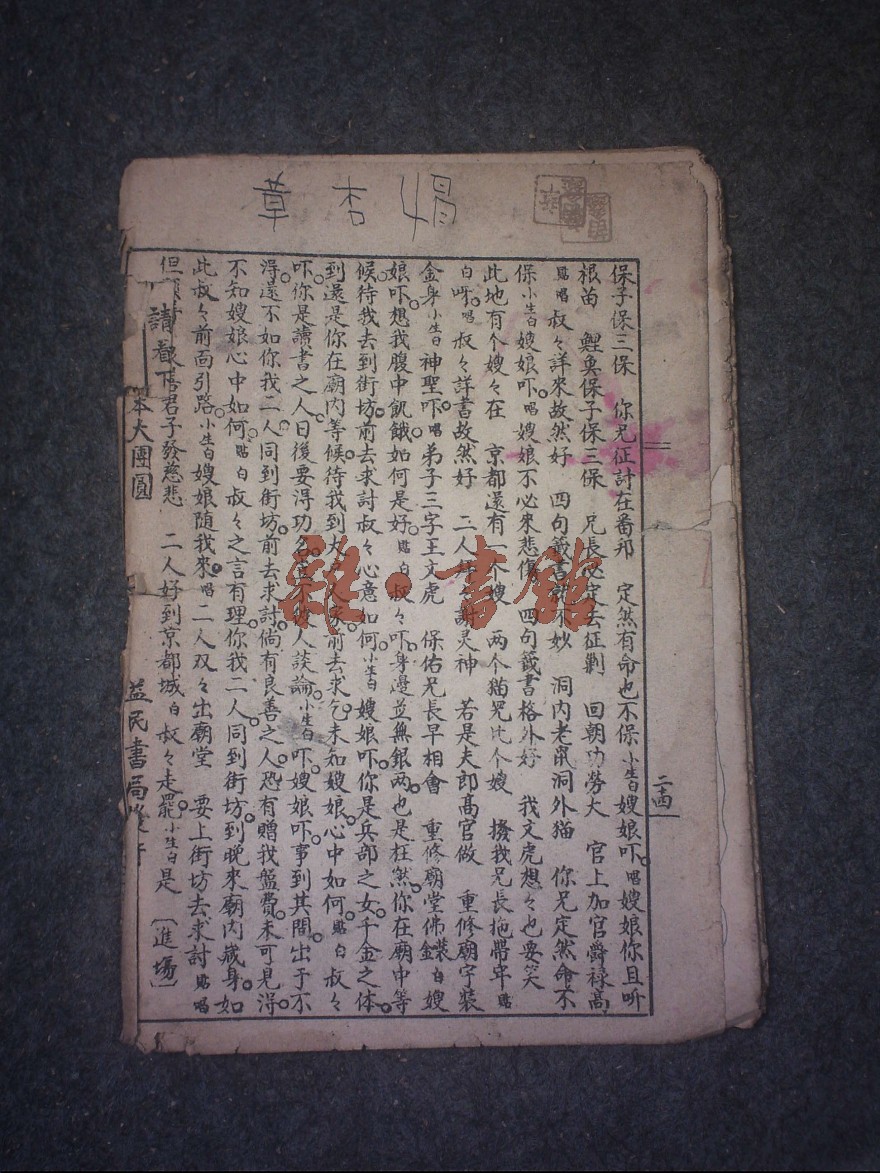 章杏娟
保子保三保　你兄征討在番邦　定然有命也不保小生白嫂娘吓。唱嫂娘你且听
根苗　鯉魚保子保三保　兄長必定去征剿　回朝功勞大　官上加官爵禄高
貼唱叔々詳來故然好　四句籤書　不妙　洞內老鼠洞外猫　你兄定然命不
保小生白嫂娘吓。唱嫂娘不必來悲傷　四句籤書格外好　我文虎想々也要笑
此地有个嫂々在　京都還有　个嫂　两个猫咒比个嫂　撥我兄長拖帶牢貼
白呀。唱叔々詳書故然好　二人　謝灵神　若是夫郎高官做　重修廟宇裝
金身小生白神聖吓。唱弟子三字王文虎　保佑兄長早相會　重修廟堂佛鑲白嫂
娘吓想我腹中飢餓如何是好。貼白叔々吓身邊並無銀两。也是枉然。你在廟中等
候待我去到街坊前去求討叔々心意如何。小生白嫂娘吓。你是兵部之女。千金之体。
到還是你在廟內等候。待我到大　　前去求乞。未知嫂娘心中如何。貼白叔々
吓。你是讀書之人。日後要得功名。豈不　人談論。小生白吓。嫂娘吓事到其間。出于不
得。還不如你我二人。同到街坊前去求討。倘有良善之人。恐有贈我盤費。未可見得。
不知嫂娘心中如何。貼白叔々之言有理。你我二人。同到街坊。到晚來廟內藏身。如
此叔々前面引路。小生白嫂娘随我來。唱二人双々出廟堂　要上街坊去求討貼唱
但　　　君子發慈悲　二人好到京都城白叔々走罷。小生白是〔進場〕
請看下
本大團圓
益民書局
二十四
雜·書館